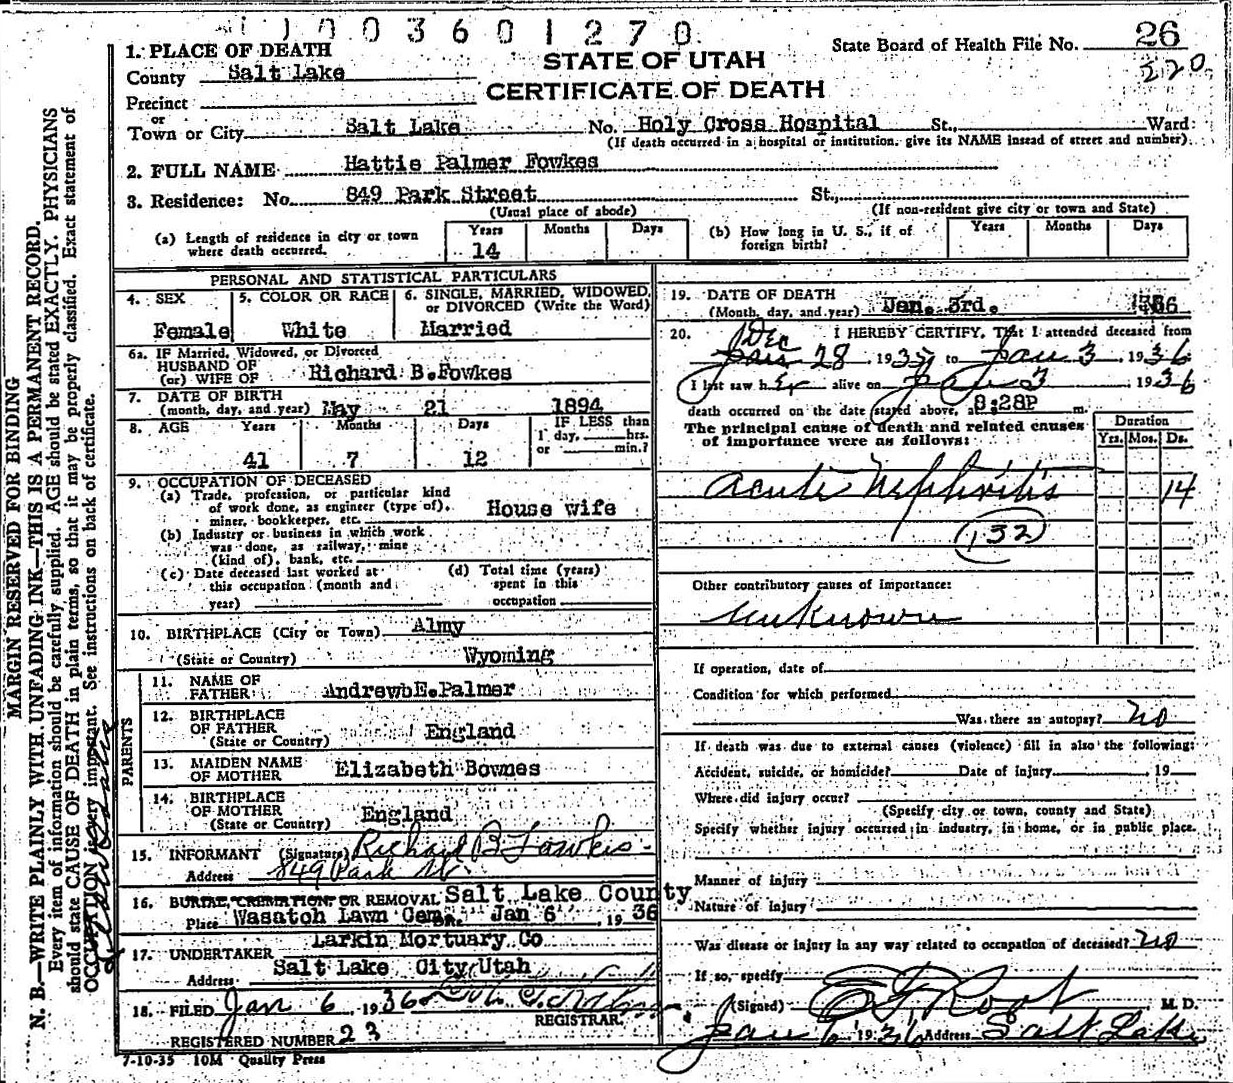 1003601270
State Board of Health File No. 26
220
STATE OF UTAH
CERTIFICATE OF DEATH
1. PLACE OF DEATH
County Salt Lake
Precinct
or
Town or City Salt Lake No. Holy Cross Hospital St., Ward
(If death occurred in a hospital or institution, give its NAME insead of street and number).
2. FULL NAME Hattie Palmer Fowkes
3. Residence: No. 849 Park Street St.,
(Usual place of abode) (If non-resident give city or town and State)
(a) Length of residence in city or town where death occurred. Years 14 Months Days
(b) How long in U. S., if of foreign birth? Years Months Days
PERSONAL AND STATISTICAL PARTICULARS
4. SEX Female
5. COLOR OR RACE White
6. SINGLE, MARRIED, WIDOWED, or DIVORCED (Write the Word) Married
6a. IF Married, Widowed, or Divorced
HUSBAND OF
(or) WIFE OF Richard B.Fowkes
7. DATE OF BIRTH
(month, day, and year) May 21 1894
8. AGE Years 41 Months 7 Days 12 IF LESS than 1 day, hrs. or min.?
9. OCCUPATION OF DECEASED
(a) Trade, profession, or particular kind
of work done, as engineer (type of),
miner, bookkeeper, etc. House wife
(b) Industry or business in which work
was done, as railway, mine
(kind of), bank, etc.
(c) Date deceased last worked at
this occupation (month and
year)
(d) Total time (years)
spent in this
occupation
10. BIRTHPLACE (City or Town) Almy
(State or Country) Wyoming
PARENTS
11. NAME OF
FATHER AndrewbE.Palmer
12. BIRTHPLACE
OF FATHER England
(State or Country)
13. MAIDEN NAME
OF MOTHER Elizabeth Bownes
14. BIRTHPLACE
OF MOTHER England
(State or Country)
15. INFORMANT (Signature) Richard B Fowkes
Address 849 Park St.
16. BURIAL, CREMATION, OR REMOVAL Salt Lake County
Place Wasatch Lawn Cem. Jan 6 1936
17. UNDERTAKER Larkin Mortuary Co
Address Salt Lake City, Utah
18. FILED Jan 6 1936
REGISTRAR.
REGISTERED NUMBER 23
7-10-35 10M Quality Press
19. DATE OF DEATH
(Month, day, and year) Jan. 3rd. 1936
20. I HEREBY CERTIFY, That I attended deceased from
Dec 28 1935 to Jan 3 1936
I last saw her alive on Jan 3 1936
death occurred on the date stated above, at 8:28P m.
The principal cause of death and related causes
of importance were as follows:
Duration
Yrs. Mos. Ds.
Acute Nephritis 14
132
Other contributory causes of importance:
unknown
If operation, date of
Condition for which performed
Was there an autopsy? no
If death was due to external causes (violence) fill in also the following:
Accident, suicide, or homicide? Date of injury 19
Where did injury occur?
(Specify city or town, county and State)
Specify whether injury occurred in industry, in home, or in public place.
Manner of injury
Nature of Injury
Was disease or injury in any way related to occupation of deceased? no
If so, specify
(Signed) E F Root M. D.
Jan 6 1936 Address Salt Lake
MARGIN RESERVED FOR BINDING
N. B.—WRITE PLAINLY WITH UNFADING INK—THIS IS A PERMANENT RECORD.
Every item of information should be carefully supplied. AGE should be stated EXACTLY. PHYSICIANS
should state CAUSE OF DEATH in plain terms, so that it may be properly classified. Exact statement of
OCCUPATION is very important. See instructions on back of certificate.